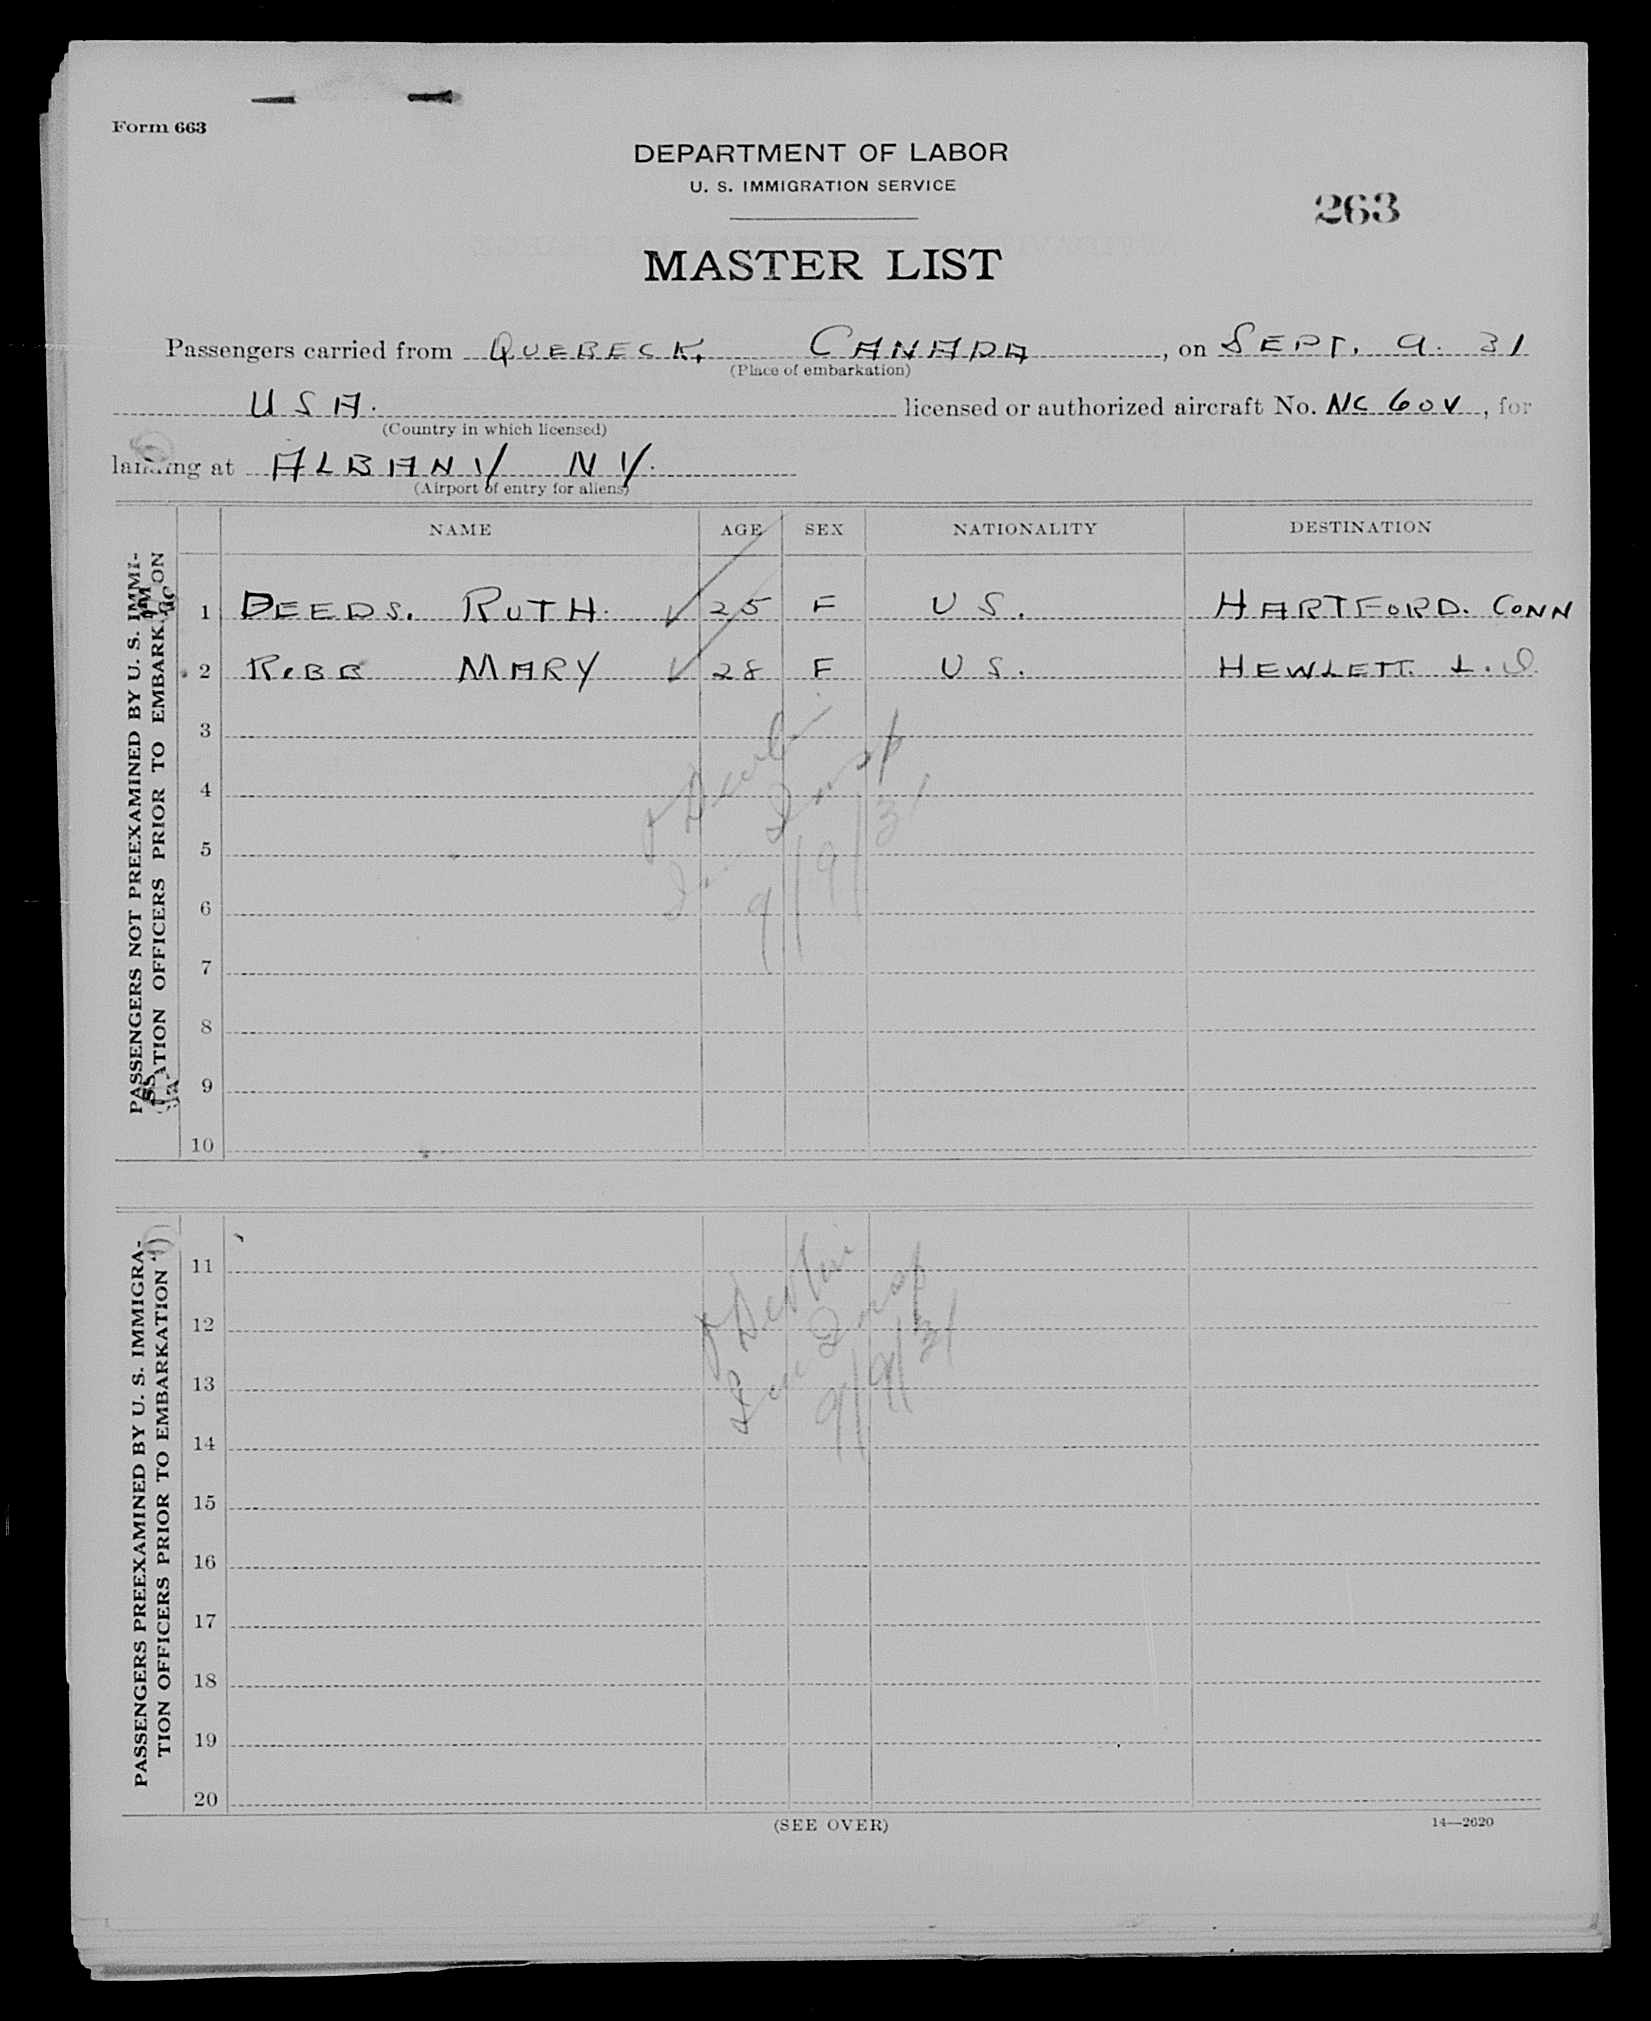 Form 663
DEPARTMENT OF LABOR
U. S. IMMIGRATION SERVICE
263
MASTER LIST
Passengers carried from QUEBECK, CANADA, on SEPT. 9. 31
(Place of embarkation)
USA. licensed or authorized aircraft No. NC 60V, for
(Country in which licensed)
landing at ALBANY NY.
(Airport of entry for aliens)
NAME AGE SEX NATIONALITY DESTINATION
PASSENGERS NOT PREEXAMINED BY U. S. IMMI-
GRATION OFFICERS PRIOR TO EMBARKATION
1 DEEDS. RUTH. ✓ 25 F U S. HARTFORD. CONN
2 ROBB MARY ✓ 28 F U S. HEWLETT. L. I.
3
4
5
6
7
8
9
10
J Devlin
Imm Insp
9/9/31
PASSENGERS PREEXAMINED BY U. S. IMMIGRA-
TION OFFICERS PRIOR TO EMBARKATION
11
12
13
14
15
16
17
18
19
20
J Devlin
Imm Insp
9/9/31
(SEE OVER)
14—2620